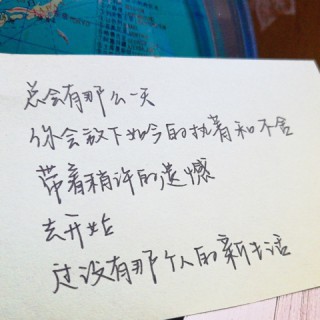 总会有那么一天
你会放下如今的执着和不舍
带着稍许的遗憾
去开始
过没有那个人的新生活